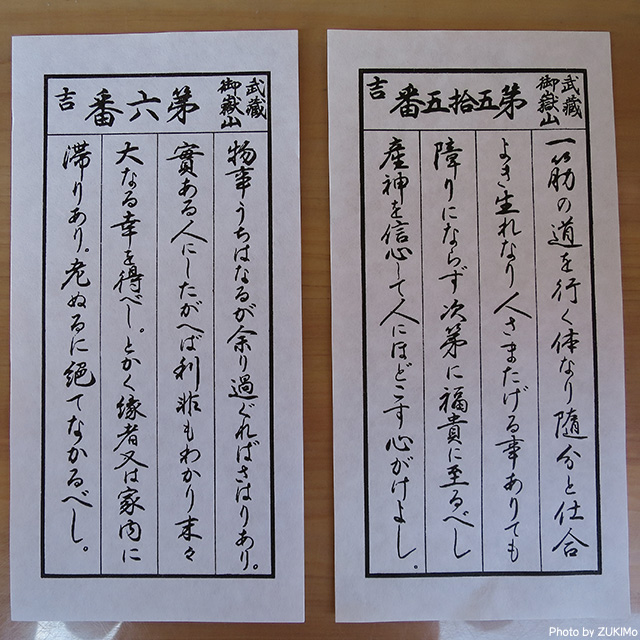 武蔵
御嶽山
第五拾五番
吉
一筋の道を行く体なり随分と仕合
よき生れなり人さまたげる事ありても
障りにならず次第に福貴に至るべし
産神を信心して人にほどこす心がけよし。
武蔵
御嶽山
第六番
吉
物事うちはなるが余り過ぐればさはりあり。
實ある人にしたがへば利非もわかり末々
大なる幸を得べし。とかく縁者又は家内に
滞りあり。危ぬるに絶てなかるべし。
Photo by ZUKIMo